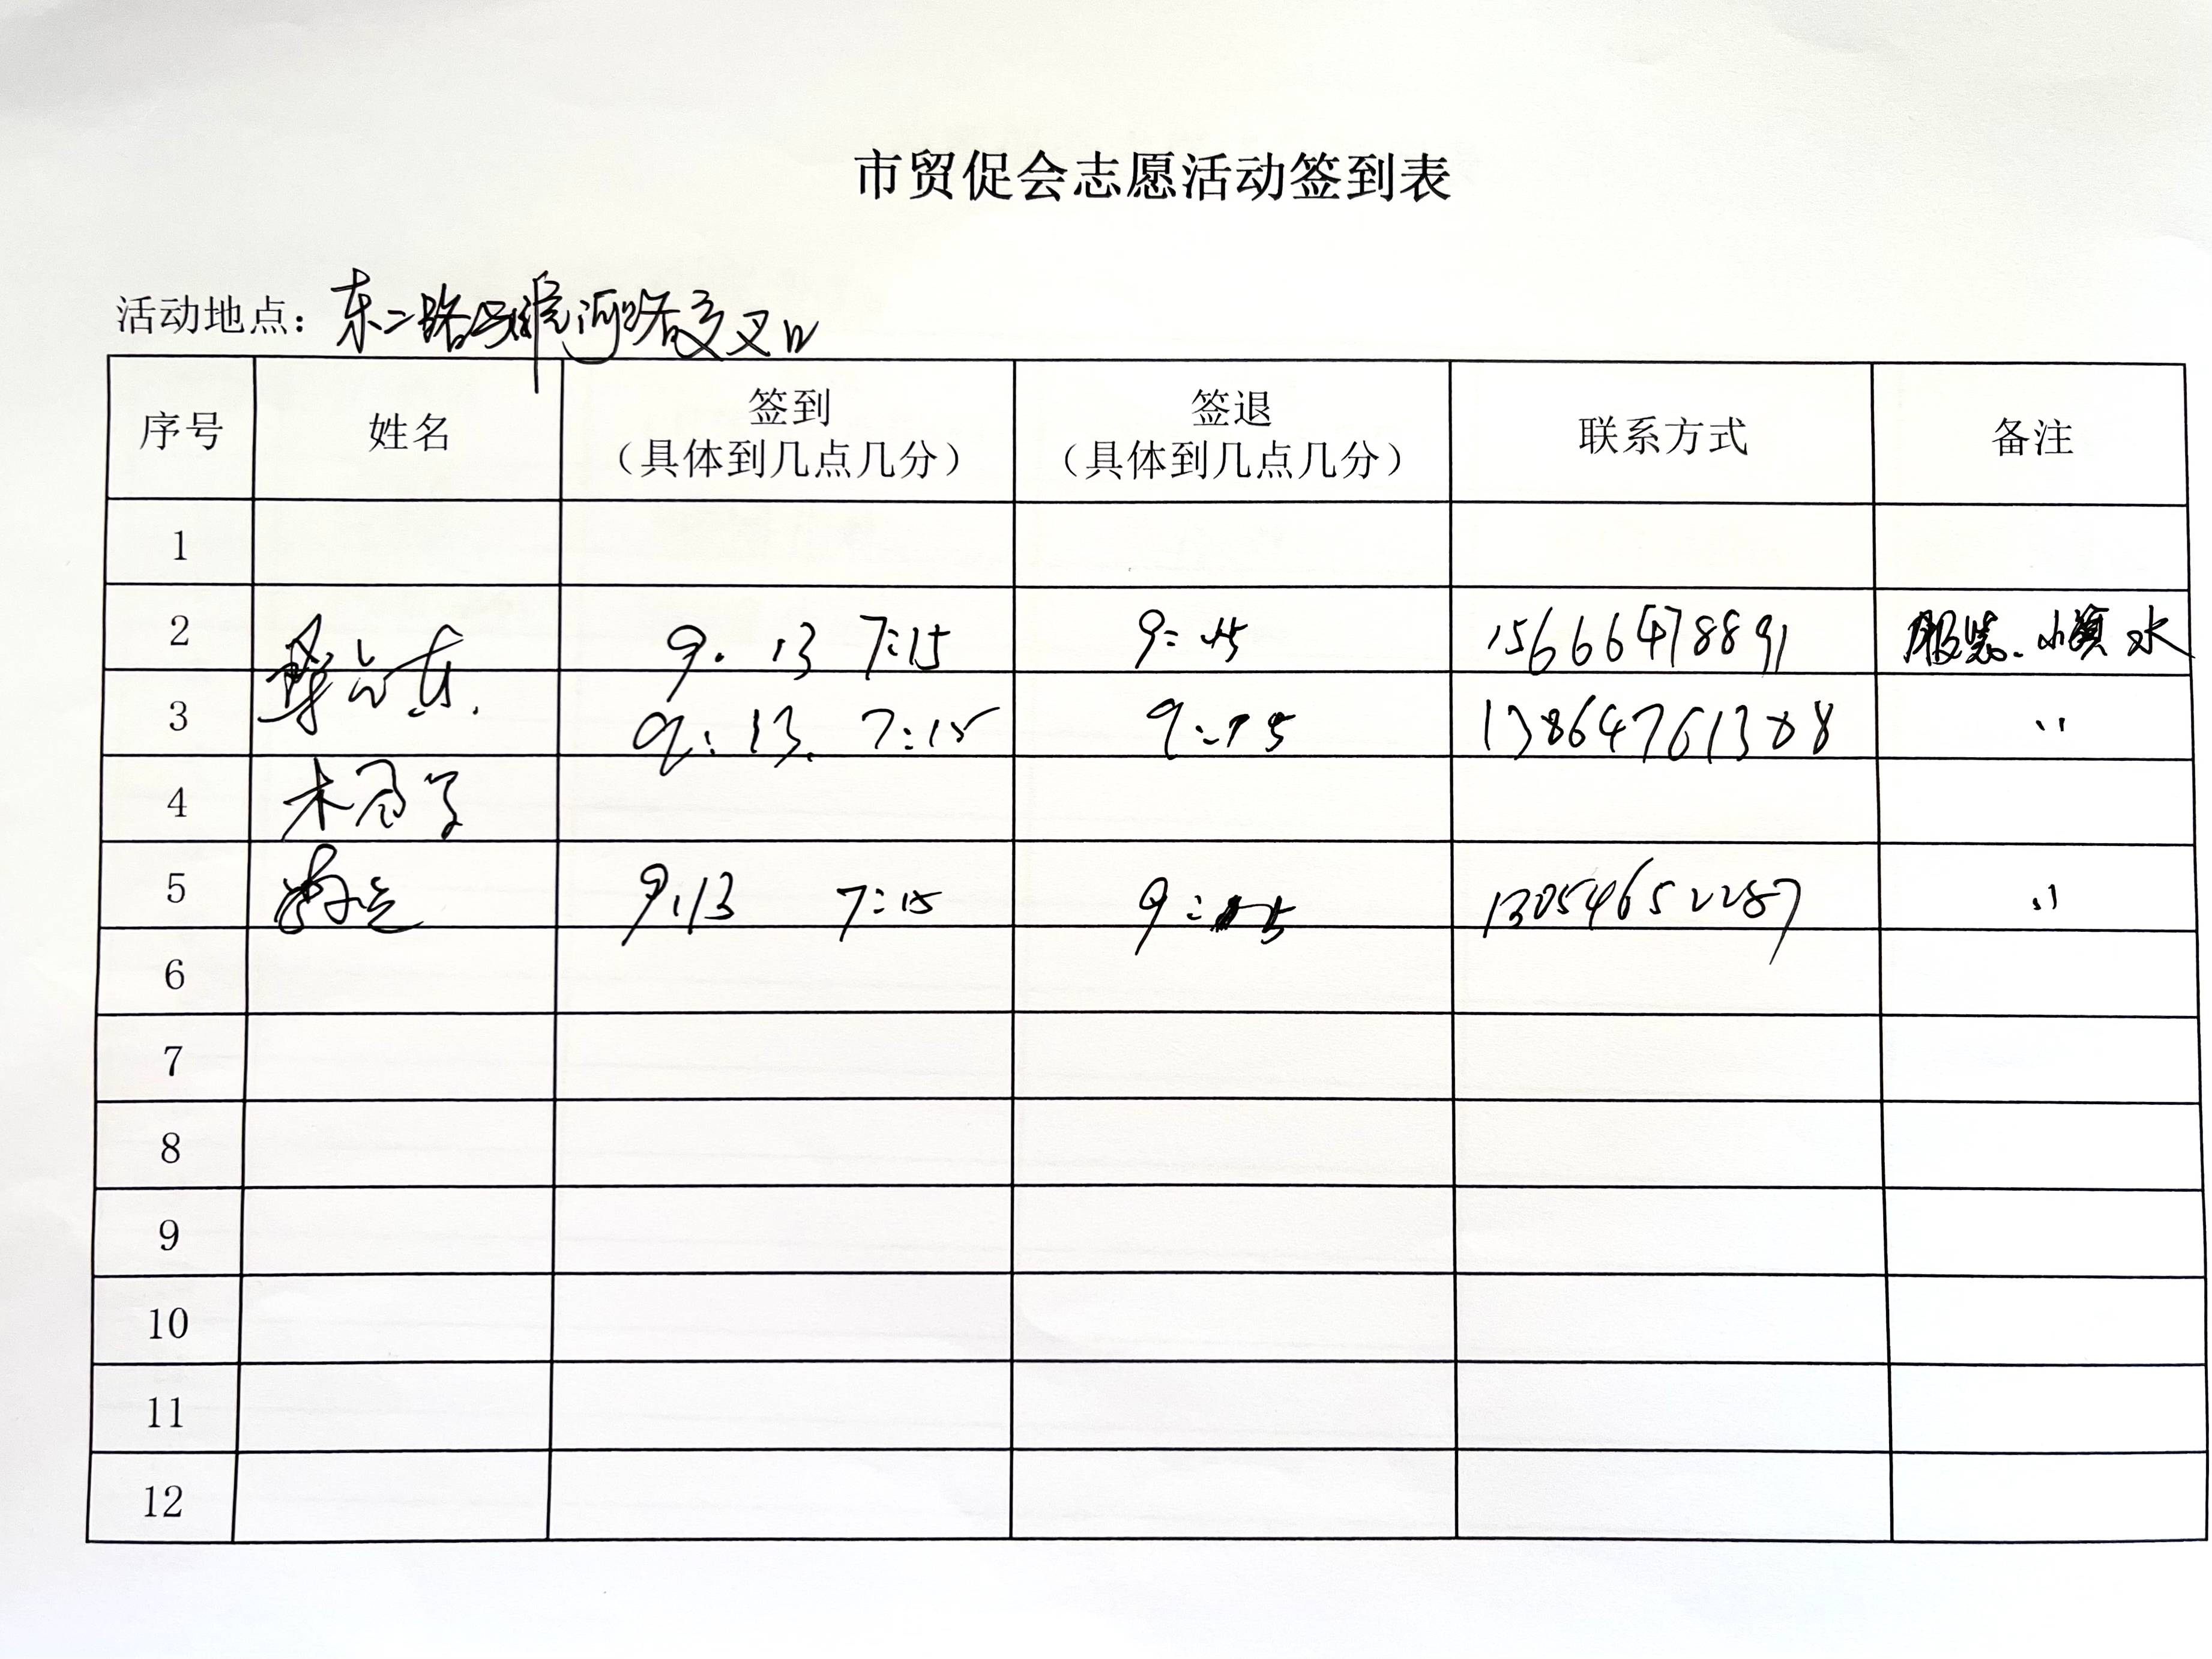 市贸促会志愿活动签到表
活动地点：东二路与淮河路交叉口
序号 姓名 签到（具体到几点几分） 签退（具体到几点几分） 联系方式 备注
1
2 9. 13 7:15 9:45 15666478891 服装. 小旗 水
3 9:13. 7:15 9: 13864761388 〃
4
5 9.13 7:15 9: 13054652287 〃
6
7
8
9
10
11
12